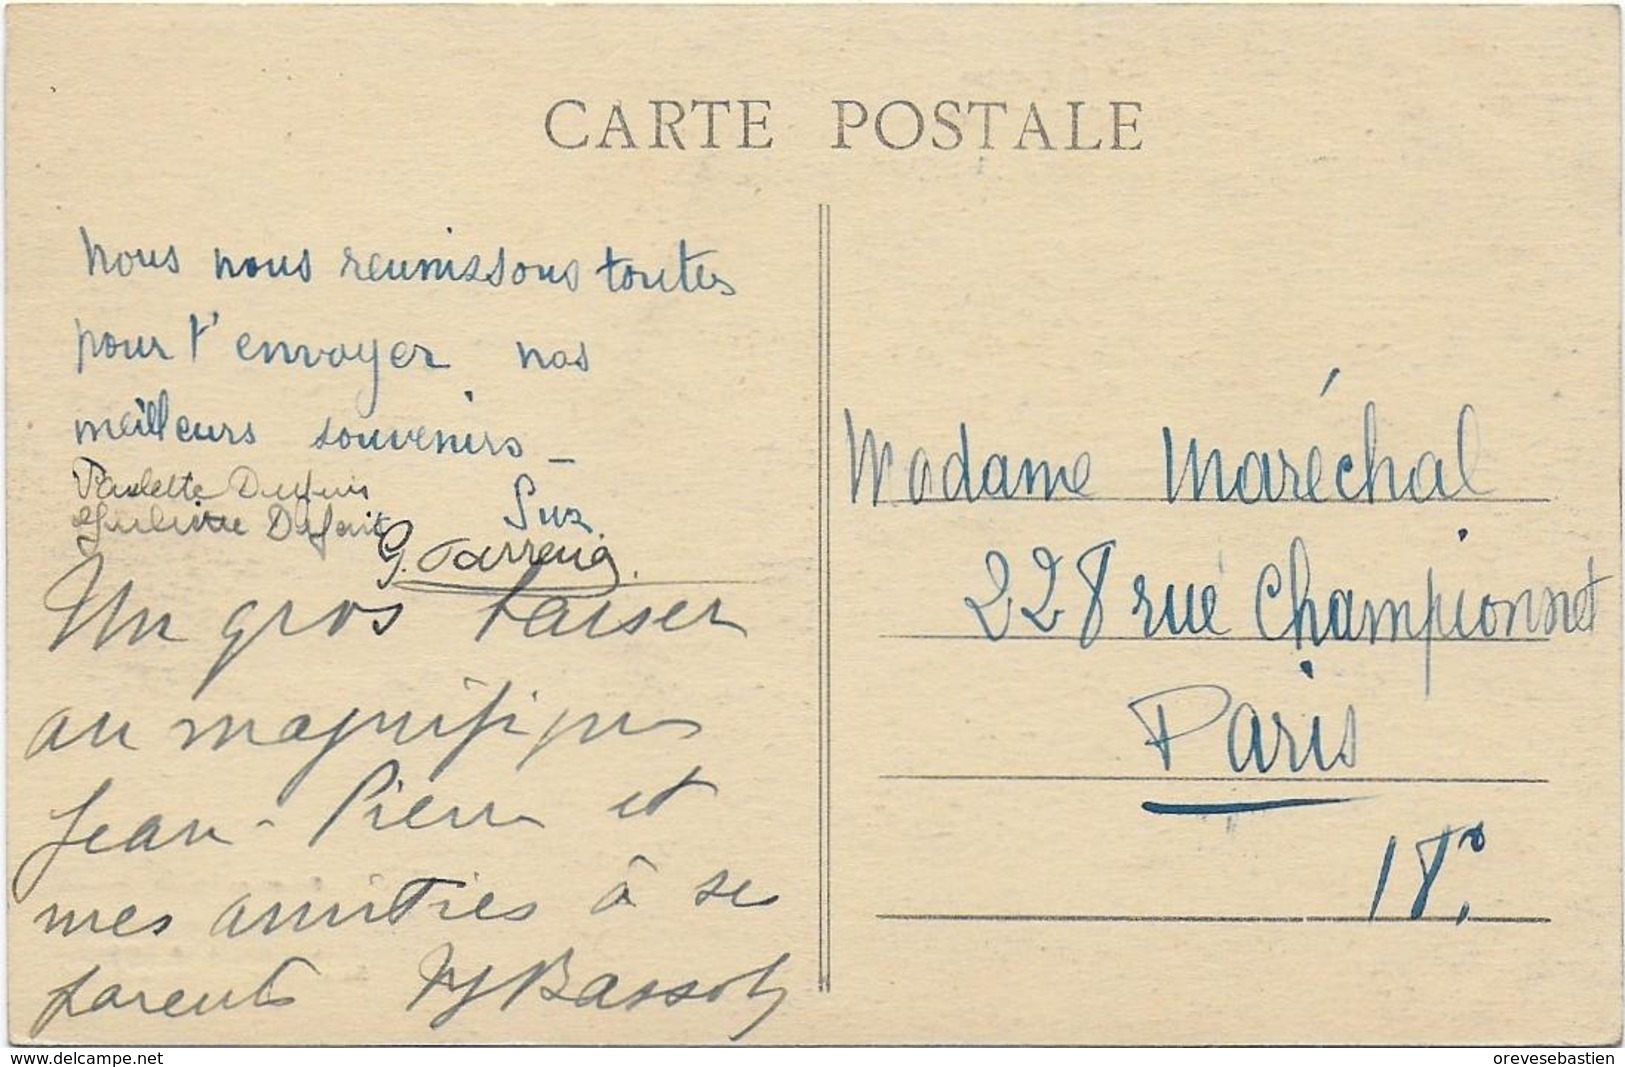 CARTE POSTALE
nous nous reunissons toutes
pour t'envoyer nos
meilleurs souvenirs _
Paulette Dufuis
Juliette
Suz
G.
Un gros baiser
au magnifique
Jean-Pierre et
mes amitiés à se
parents
Madame Maréchal
228 rue Championnet
Paris
18º
www.delcampe.net
orevesebastien